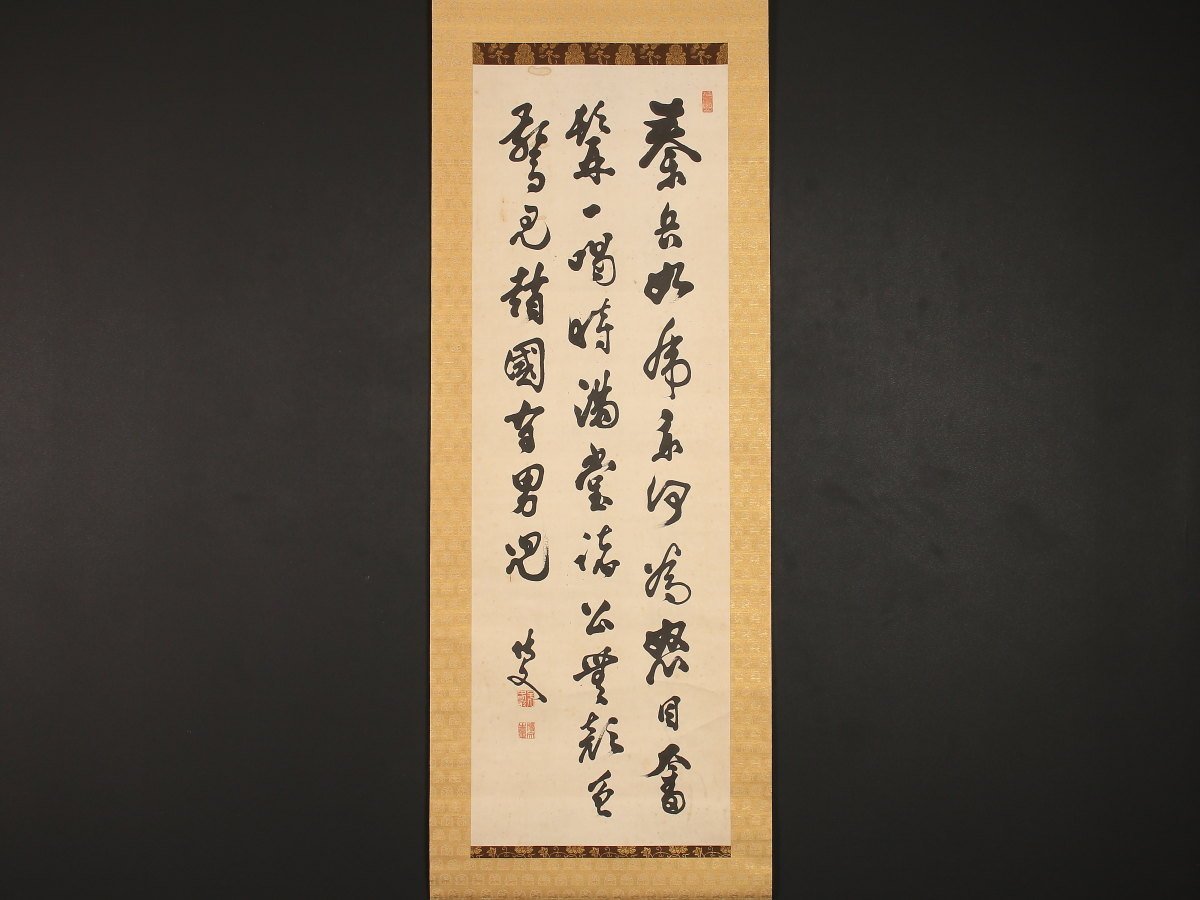 秦兵如虎亦何為怒目奮
髯一喝時滿堂諸公無顏色
驚見趙國有男兒
博文